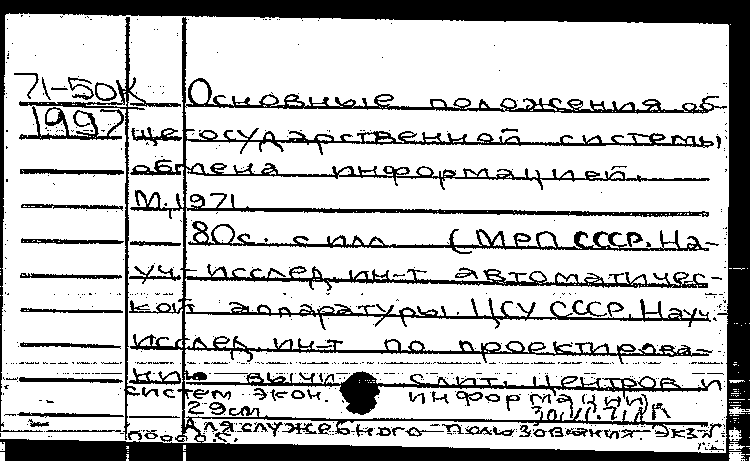 71-50К Основные положения об-
1997 щегосударственной системы
обмена информацией.
М., 1971.
80с. с илл. (МРП СССР. На-
уч.-исслед. ин-т автоматичес-
кой аппаратуры. ЦСУ СССР. Науч.-
исслед. ин-т по проектирова-
нию вычислит. центров и
систем экон. информации)
29см.
Для служебного пользования. Экз.